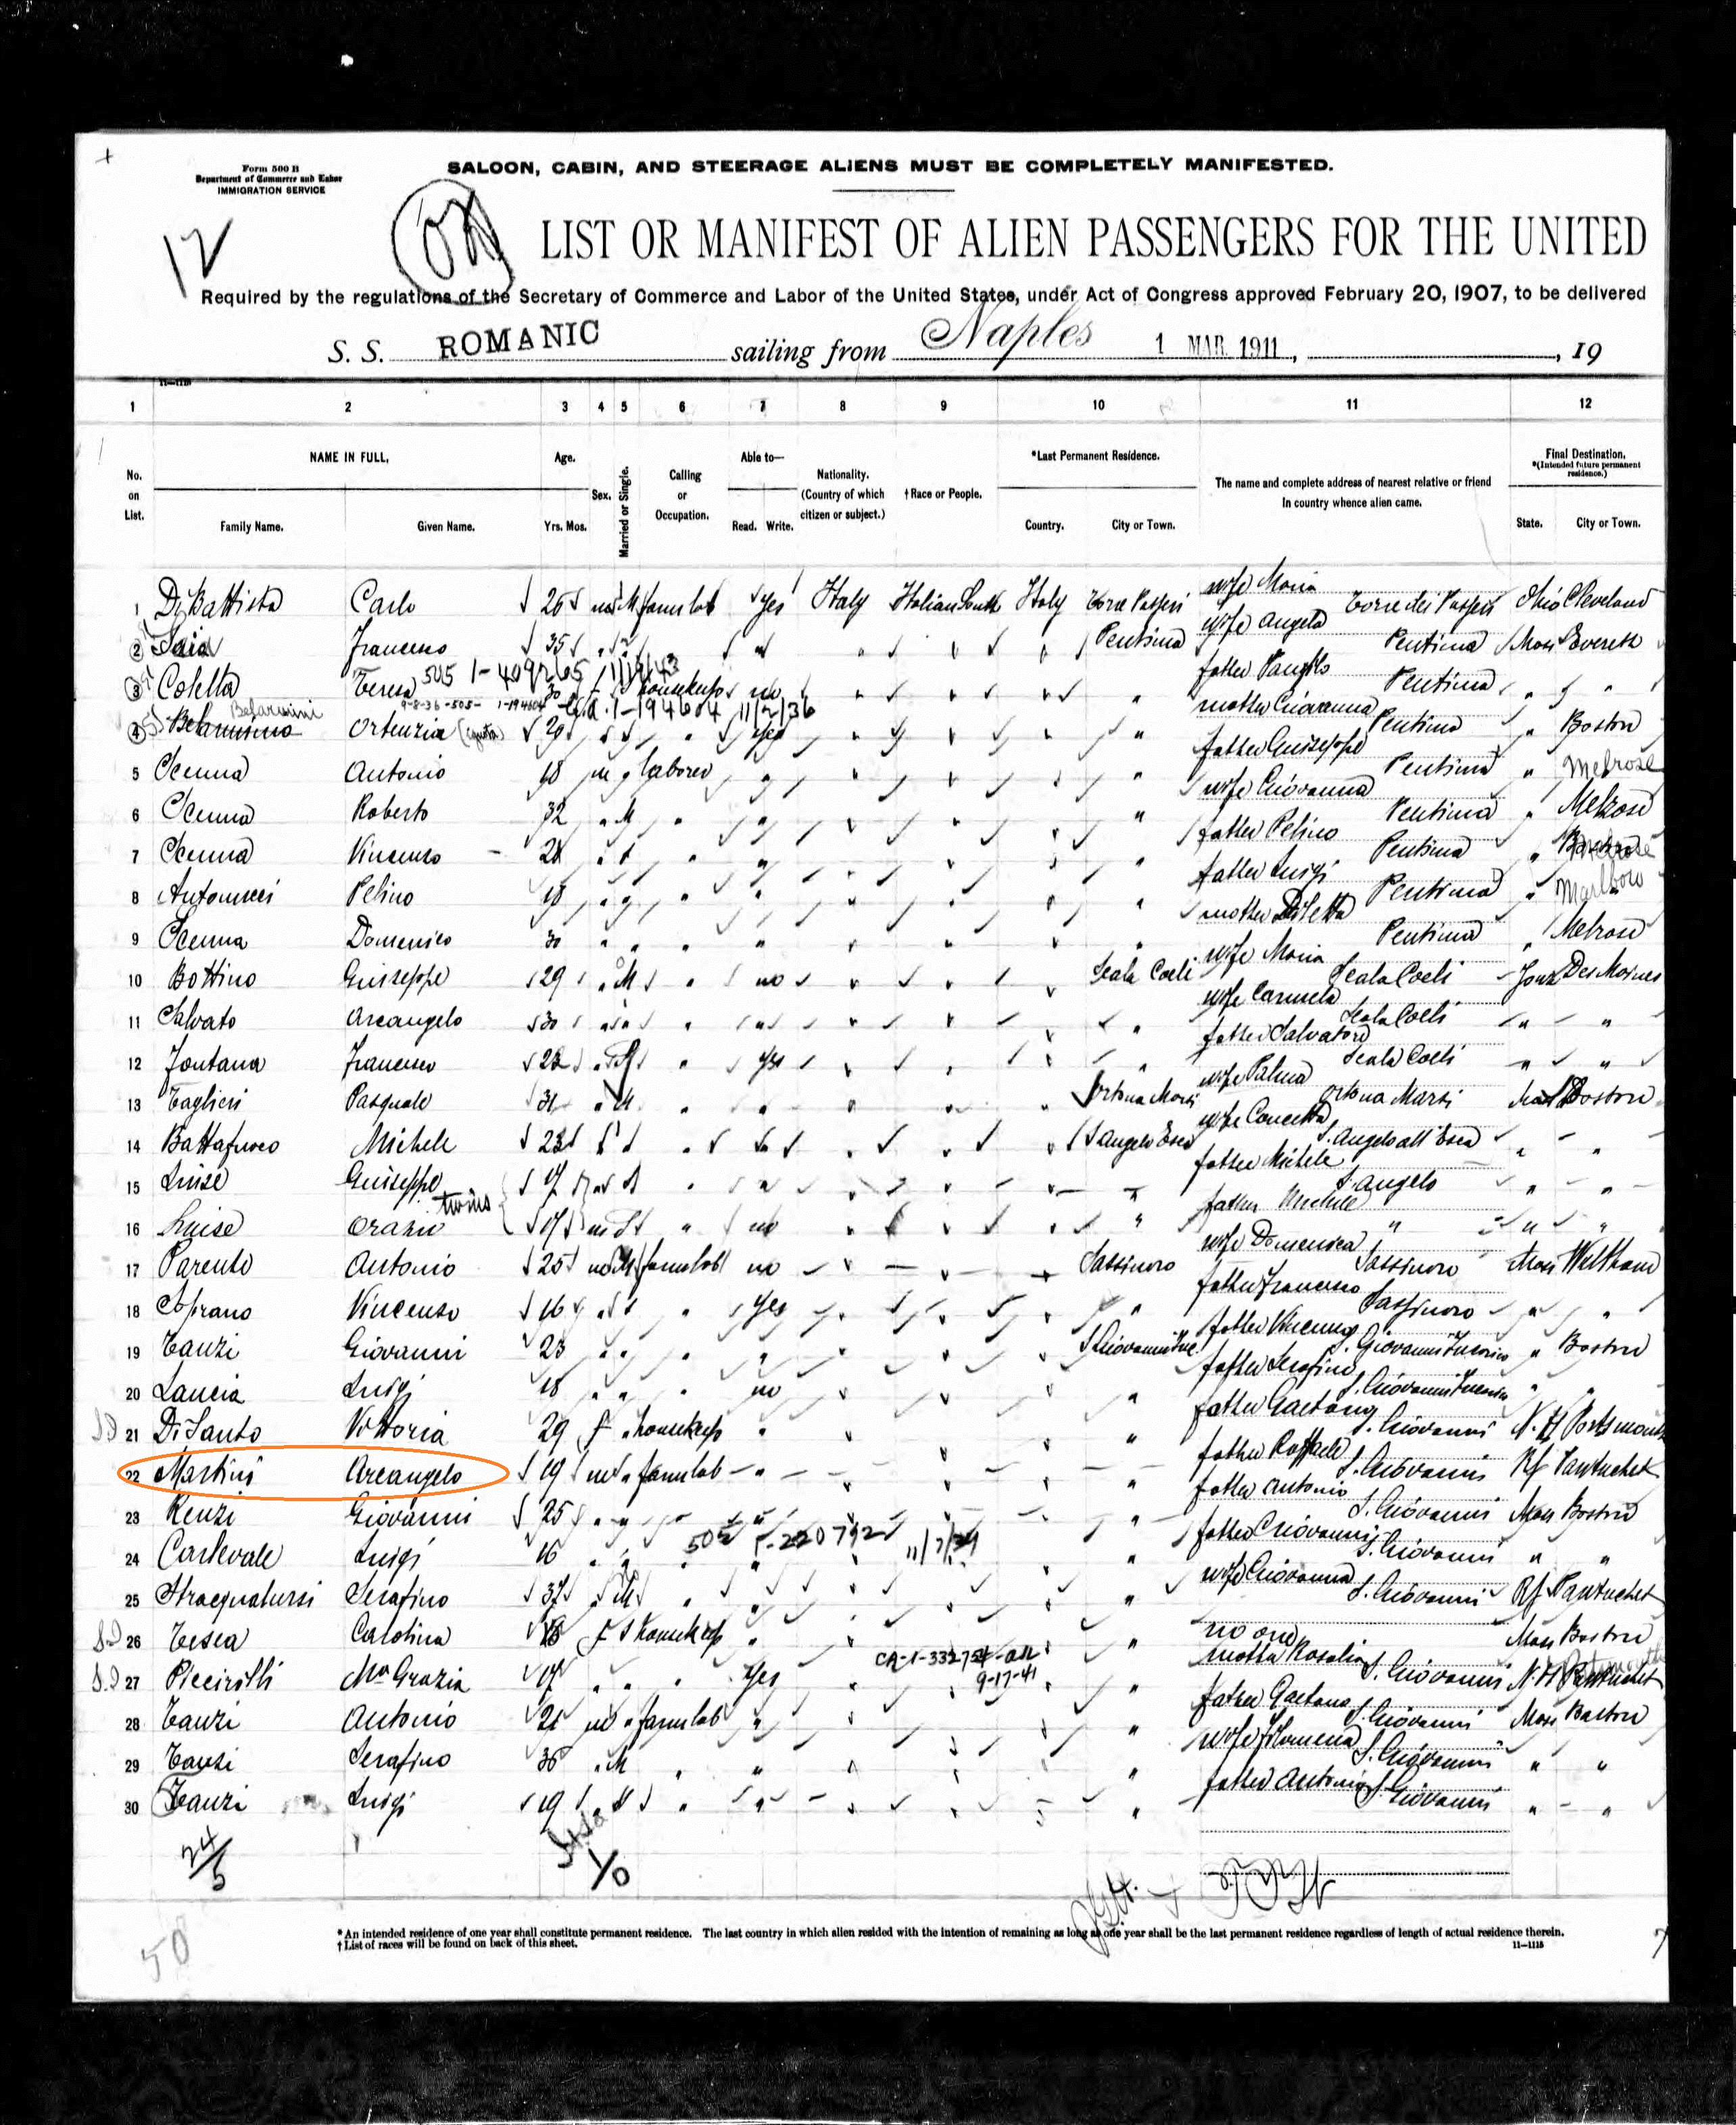 Form 500 B
Department of Commerce and Labor
IMMIGRATION SERVICE
SALOON, CABIN, AND STEERAGE ALIENS MUST BE COMPLETELY MANIFESTED.
12
OK
LIST OR MANIFEST OF ALIEN PASSENGERS FOR THE UNITED
Required by the regulations of the Secretary of Commerce and Labor of the United States, under Act of Congress approved February 20, 1907, to be delivered
S. S. ROMANIC sailing from Naples 1 MAR 1911, , 19
1 2 3 4 5 6 7 8 9 10 11 12
No. on List.
NAME IN FULL.
Family Name. Given Name.
Age.
Yrs. Mos.
Sex.
Married or Single.
Calling or Occupation.
Able to—
Read. Write.
Nationality. (Country of which citizen or subject.)
†Race or People.
*Last Permanent Residence.
Country. City or Town.
The name and complete address of nearest relative or friend in country whence alien came.
Final Destination.
*(Intended future permanent residence.)
State. City or Town.
1 Di Battista Carlo 26 m M farm lab yes Italy Italian South Italy Torre Passeri wife Maria Torre dei Passeri Ohio Cleveland
2 Francesco 35 " " Pentima wife Angela Pentima Mass Everett
505 1-409265
3 Coletta Teresa 30 f housekeep no " father Pentima " "
9-8-36-505- 1-194604 1-194604 11/2/36
Belarmini
4 Ortenzia 29 " yes " mother Giovanna Pentima " Boston
5 Antonio 18 m laborer " father Guiseppe Pentima " Melrose
6 Roberto 32 " M " " wife Giovanna Pentima " Melrose
7 Vincenzo 28 " " " father Pelino Pentima "
8 Antonucci Pelino 18 " " " father Luigi Pentima " Marlboro
9 Domenico 30 " " " mother Diletta Pentima " Melrose
10 Bottino Guiseppe 29 " M " no Scala Coeli wife Maria Scala Coeli Iowa Des Moines
11 Salvato Arcangelo 30 " " " " wife Carmela Scala Coeli " "
12 Fontana Francesco 22 " S " yes " father Salvatore Scala Coeli " "
13 Taglieri Pasquale 31 " M " " Ortona Marsi wife Palma Ortona Marsi Mass Boston
14 Battafuoco Michele 23 " " " S Angelo wife Concetta S. Angelo all' " "
15 Luise Guiseppe 17 m S " " " father Michele S. Angelo " "
twins
16 Luise Orazio 17 m S " no " father Michele " " "
17 Parente Antonio 25 m M farm lab no Sassinoro wife Domenica Sassinoro Mass Waltham
18 Soprano Vincenzo 16 " S " yes " father Francesco Sassinoro " "
19 Tauzi Giovanni 23 " " " " S Giovanni father Vincenzo S. Giovanni " Boston
20 Lancia Luigi 18 " " " no " father Serafino S. Giovanni " "
21 Di Santo Vittoria 29 f " housekeep " " father Gaetano S. Giovanni N. H Portsmouth
22 Martini Arcangelo 19 m " farm lab " " father Raffaele S. Giovanni RI Pawtucket
23 Renzi Giovanni 25 " " " " father Antonio S. Giovanni Mass Boston
505 1-220792
24 Carlevale Luigi 16 " " " father Giovanni S. Giovanni " "
25 Serafino 37 " M " " wife Giovanna S. Giovanni RI Pawtucket
26 Carolina 18 f S housekeep " " no one Mass Boston
9-17-41
27 Piccirilli Ma Grazia 17 " " " yes " mother Rosalia S. Giovanni N H
28 Tauzi Antonio 21 m " farm lab " " father Gaetano S. Giovanni Mass Boston
29 Tauzi Serafino 36 " M " " " wife Filomena S. Giovanni " "
30 Tauzi Luigi 19 " S " " " father Antonio S. Giovanni " "
24/5
1/0
50
*An intended residence of one year shall constitute permanent residence. The last country in which alien resided with the intention of remaining as long as one year shall be the last permanent residence regardless of length of actual residence therein.
†List of races will be found on back of this sheet.
11—1115